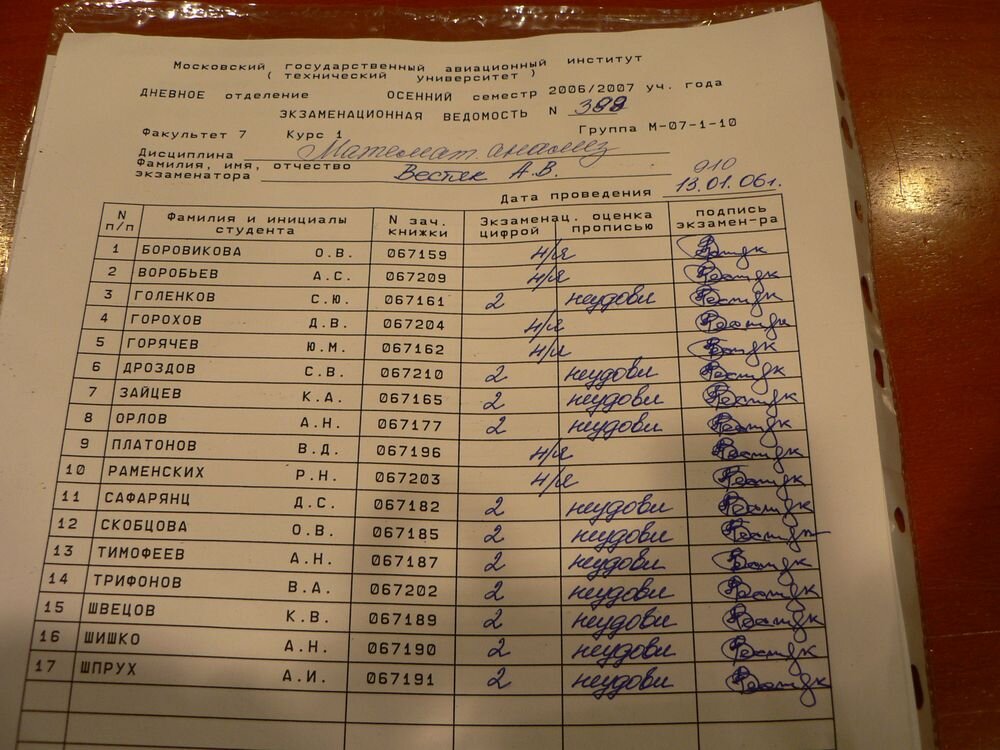 Московский государственный авиационный институт
( технический университет )
ДНЕВНОЕ отделение ОСЕННИЙ семестр 2006/2007 уч. года
ЭКЗАМЕНАЦИОННАЯ ВЕДОМОСТЬ N 388
Факультет 7 Курс 1 Группа М-07-1-10
Дисциплина Математ. анализ
Фамилия, имя, отчество
экзаменатора Вестяк А.В. 910
Дата проведения 13.01.06г.
N п/п Фамилия и инициалы студента N зач. книжки Экзаменац. оценка цифрой прописью подпись экзамен-ра
1 БОРОВИКОВА О.В. 067159 н/я
2 ВОРОБЬЕВ А.С. 067209 н/я
3 ГОЛЕНКОВ С.Ю. 067161 2 неудовл
4 ГОРОХОВ Д.В. 067204 н/я
5 ГОРЯЧЕВ Ю.М. 067162 н/я
6 ДРОЗДОВ С.В. 067210 2 неудовл
7 ЗАЙЦЕВ К.А. 067165 2 неудовл
8 ОРЛОВ А.Н. 067177 2 неудовл
9 ПЛАТОНОВ В.Д. 067196 н/я
10 РАМЕНСКИХ Р.Н. 067203 н/я
11 САФАРЯНЦ Д.С. 067182 2 неудовл
12 СКОБЦОВА О.В. 067185 2 неудовл
13 ТИМОФЕЕВ А.Н. 067187 2 неудовл
14 ТРИФОНОВ В.А. 067202 2 неудовл
15 ШВЕЦОВ К.В. 067189 2 неудовл
16 ШИШКО А.Н. 067190 2 неудовл
17 ШПРУХ А.И. 067191 2 неудовл